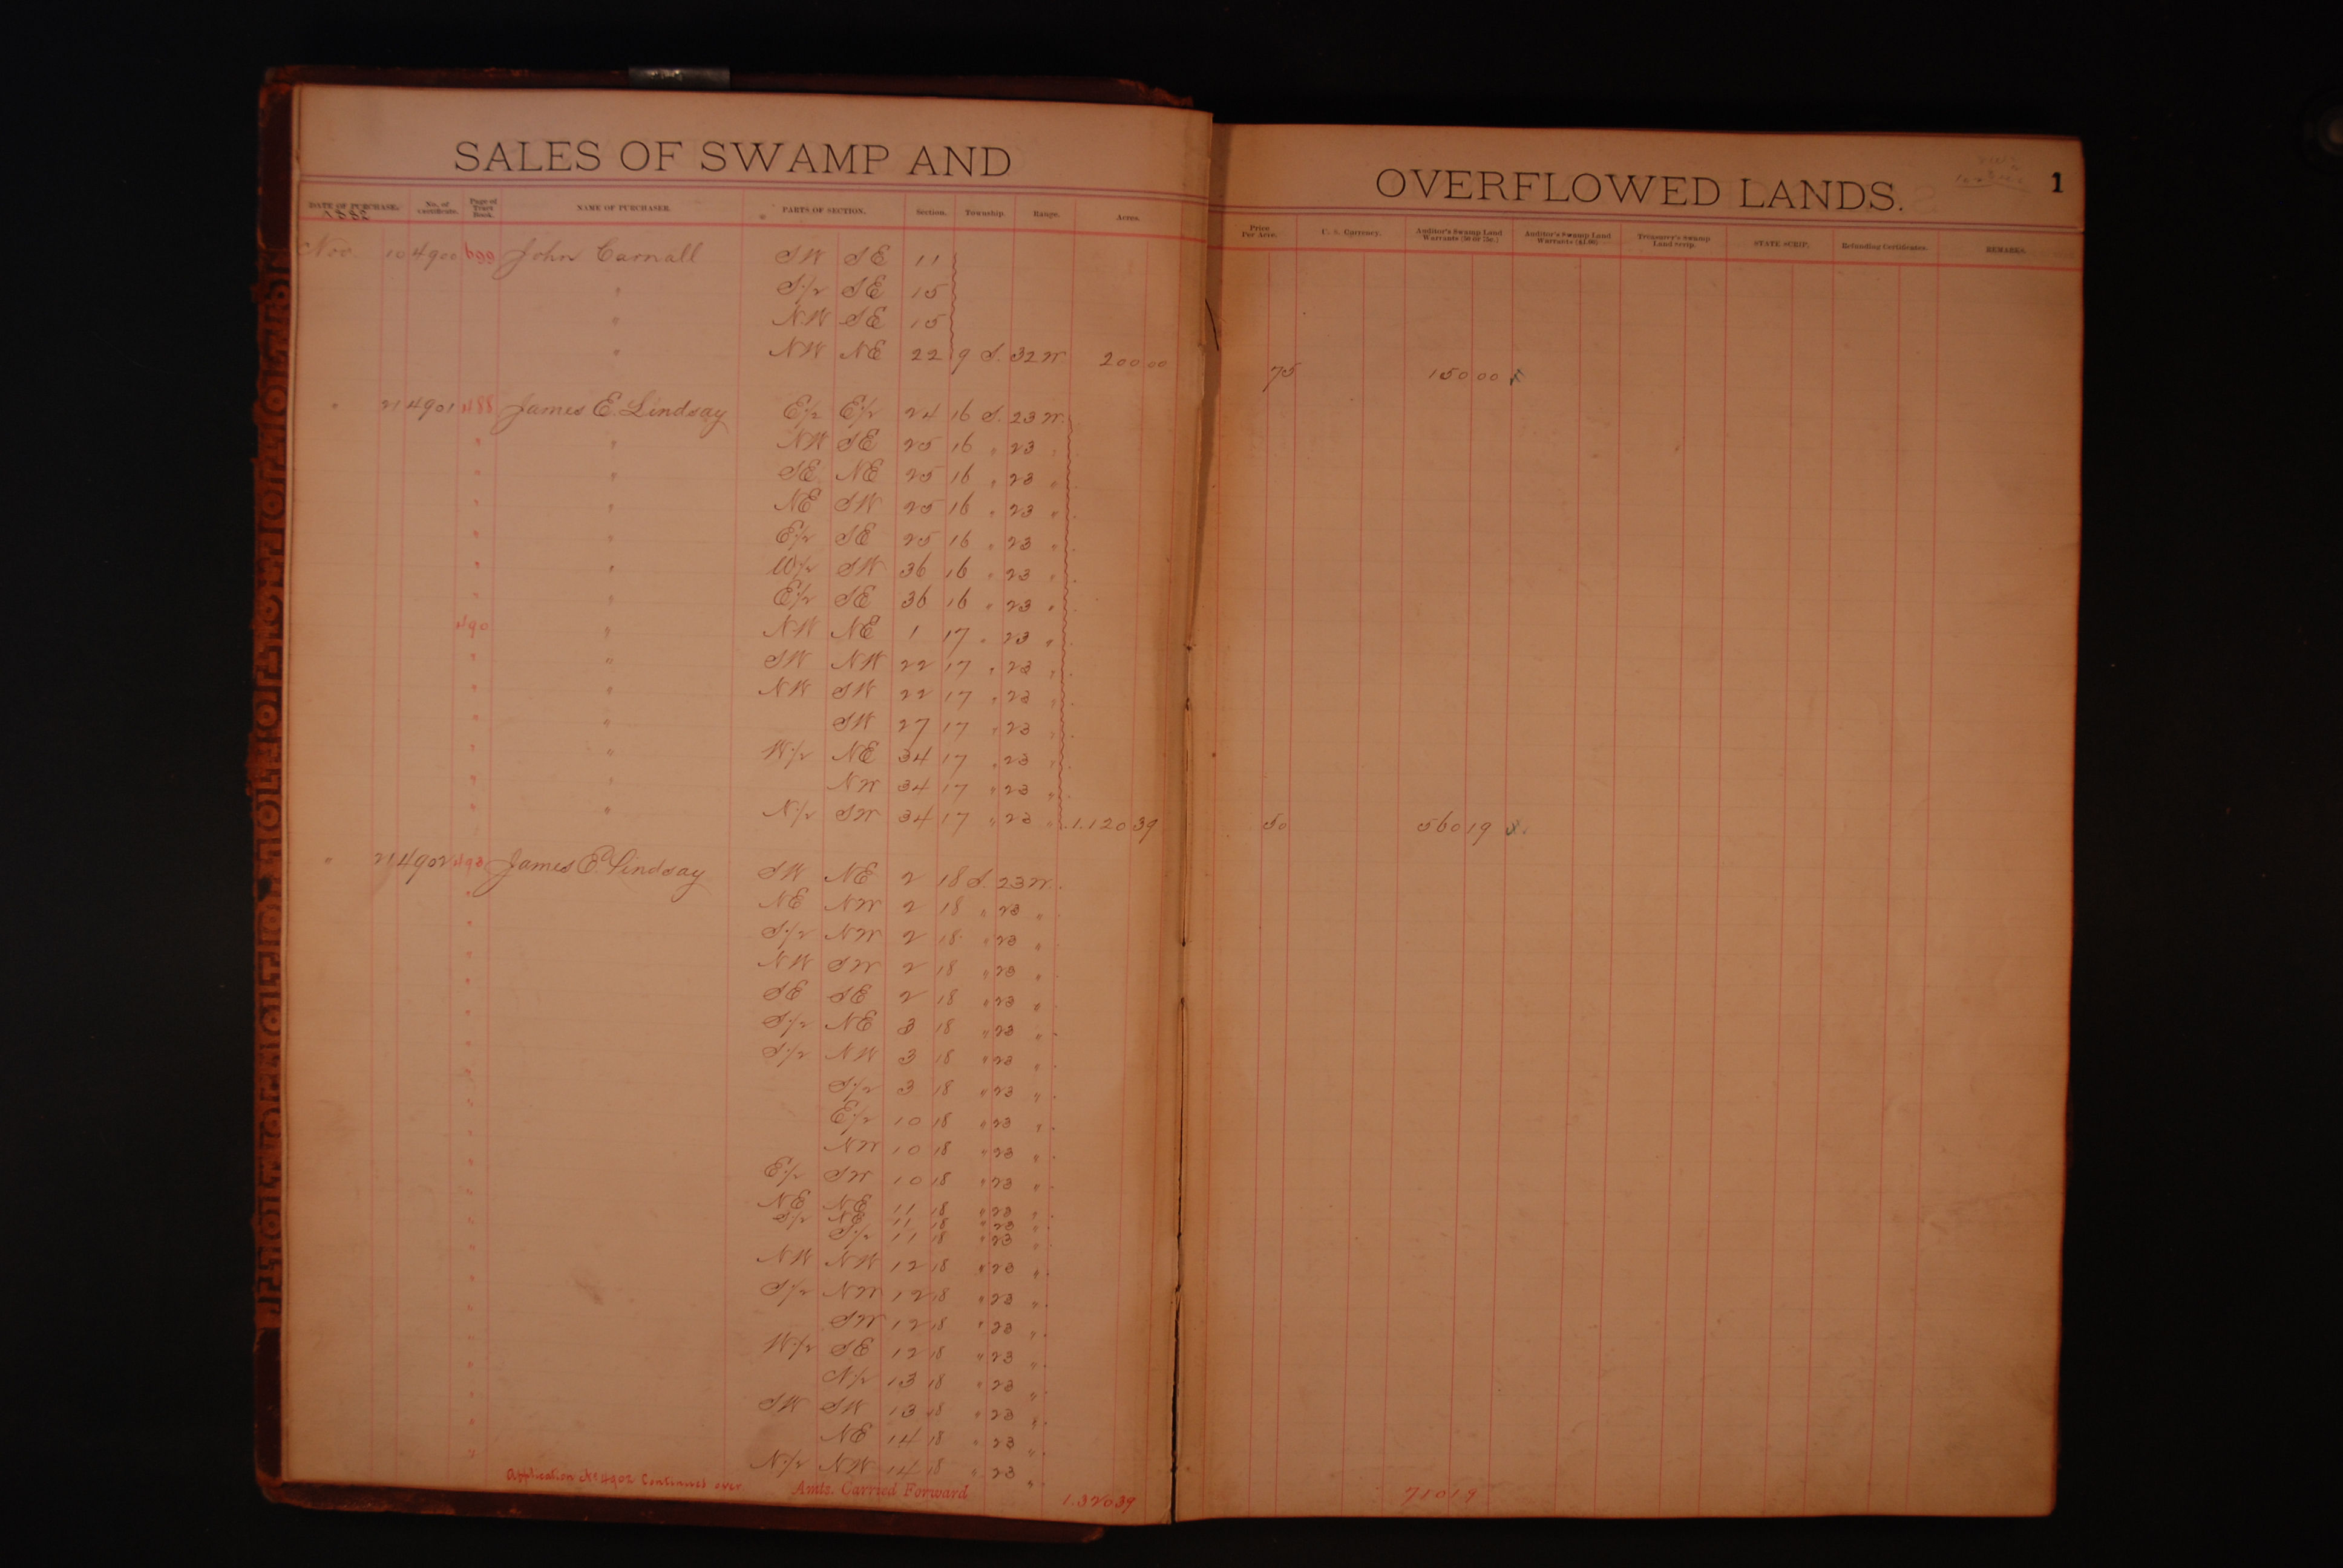 SALES OF SWAMP AND
OVERFLOWED LANDS.
1
DATE OF PURCHASE. No. of Certificate. Page of Tract Book. NAME OF PURCHASER. PARTS OF SECTION. Section. Township. Range. Acres.
Price Per Acre. U. S. Currency. Auditor's Swamp Land Warrants (50 & 75c.) Auditor's Swamp Land Warrants ($1.00) Treasurer's Swamp Land Scrip. STATE SCRIP. Refunding Certificates. REMARKS.
1882
Nov. 10 4900 699 John Carnall SW SE 11
" S½ SE 15
" NW SE 15
" NW NE 22 9 S. 32 W 200 00 75 150 00
" 21 4901 488 James E. Lindsay E½ E½ 24 16 S. 23 W.
" " NW SE 25 16 " 23 "
" " SE NE 25 16 " 23 "
" " NE SW 25 16 " 23 "
" " E½ SE 25 16 " 23 "
" " W½ SW 36 16 " 23 "
" " E½ SE 36 16 " 23 "
490 " NW NE 1 17 " 23 "
" " SW NW 22 17 " 23 "
" " NW SW 22 17 " 23 "
" " SW 27 17 " 23 "
" " W½ NE 34 17 " 23 "
" " NW 34 17 " 23 "
" " N½ SW 34 17 " 23 " 1.120 39 50 560 19
" 21 4902 James E. Lindsay SW NE 2 18 S. 23 W.
" NE NW 2 18 " 23 "
" S½ NW 2 18 " 23 "
" NW SW 2 18 " 23 "
" SE SE 2 18 " 23 "
" S½ NE 3 18 " 23 "
" S½ NW 3 18 " 23 "
" S½ 3 18 " 23 "
" E½ 10 18 " 23 "
" NW 10 18 " 23 "
" E½ SW 10 18 " 23 "
" NE NE 11 18 " 23 "
S½ NE 11 18 " 23 "
" S½ 11 18 " 23 "
" NW NW 12 18 " 23 "
" S½ NW 12 18 " 23 "
" SW 12 18 " 23 "
" W½ SE 12 18 " 23 "
" N½ 13 18 " 23 "
" SW SW 13 18 " 23 "
" NE 14 18 " 23 "
" N½ NW 14 18 " 23 "
Application No 4902 Continued over
Amts. Carried Forward 1.320 39 710 19